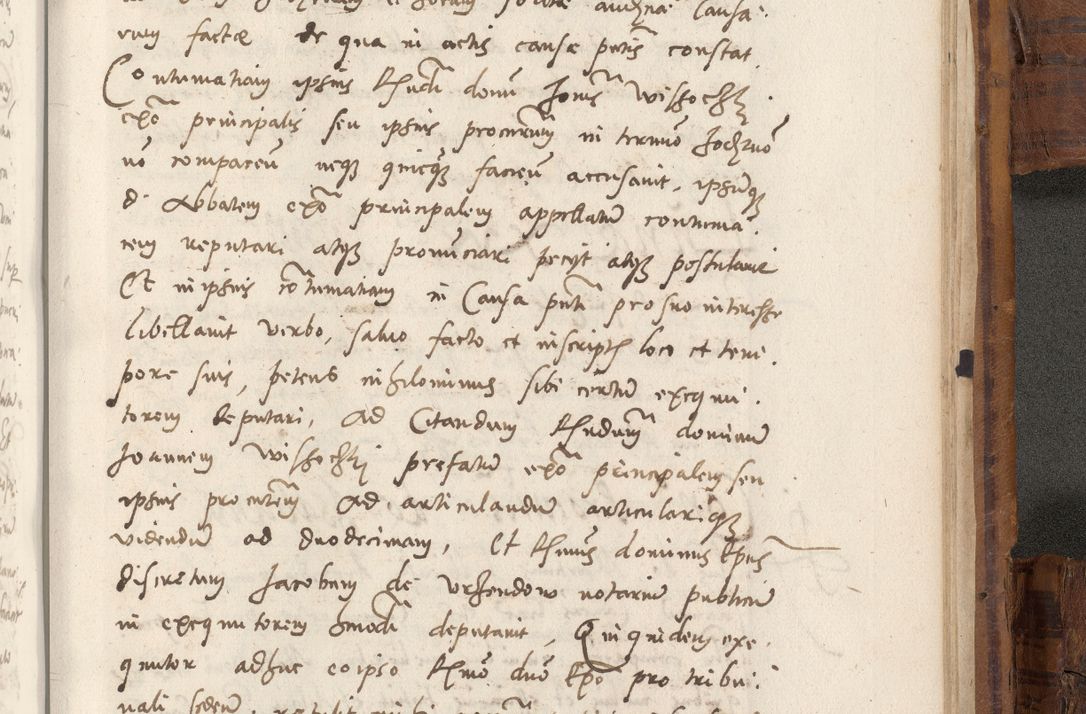 rum factæ de qua in actis causæ pntis constat.
Contumatiam ipsius Rndi domi Joannis Wissochkj
exo principalis seu ipsius procurem in termino hodierno
no comparen neque quicquam facien accusavit, ipsumque
d. Abbatem exo principalem appellatum contuma-
cem reputari atque pronunciari peciyt atque postulavit
Et in ipsius contumatiam in Causa pnti pro suo interesse
libellavit verbo, salvo facto et inscriptis loco et tem-
pore suis, petens nihilominus sibi certum exequu-
torem deputari, ad Citandum Rndum dominum
Joannem Wissochkj prefatum exo principalem seu
ipsius procurem Ad articulandum articularique
videndum ad duodecimam, Et Rmus dominus Epus
discretum Jacobum de Urzendow notarium publicum
in exequutorem hmodi deputavit, Qui quidem exe-
quutor adhuc eoipso Rmo dno Epo pro tribu-
nali seden